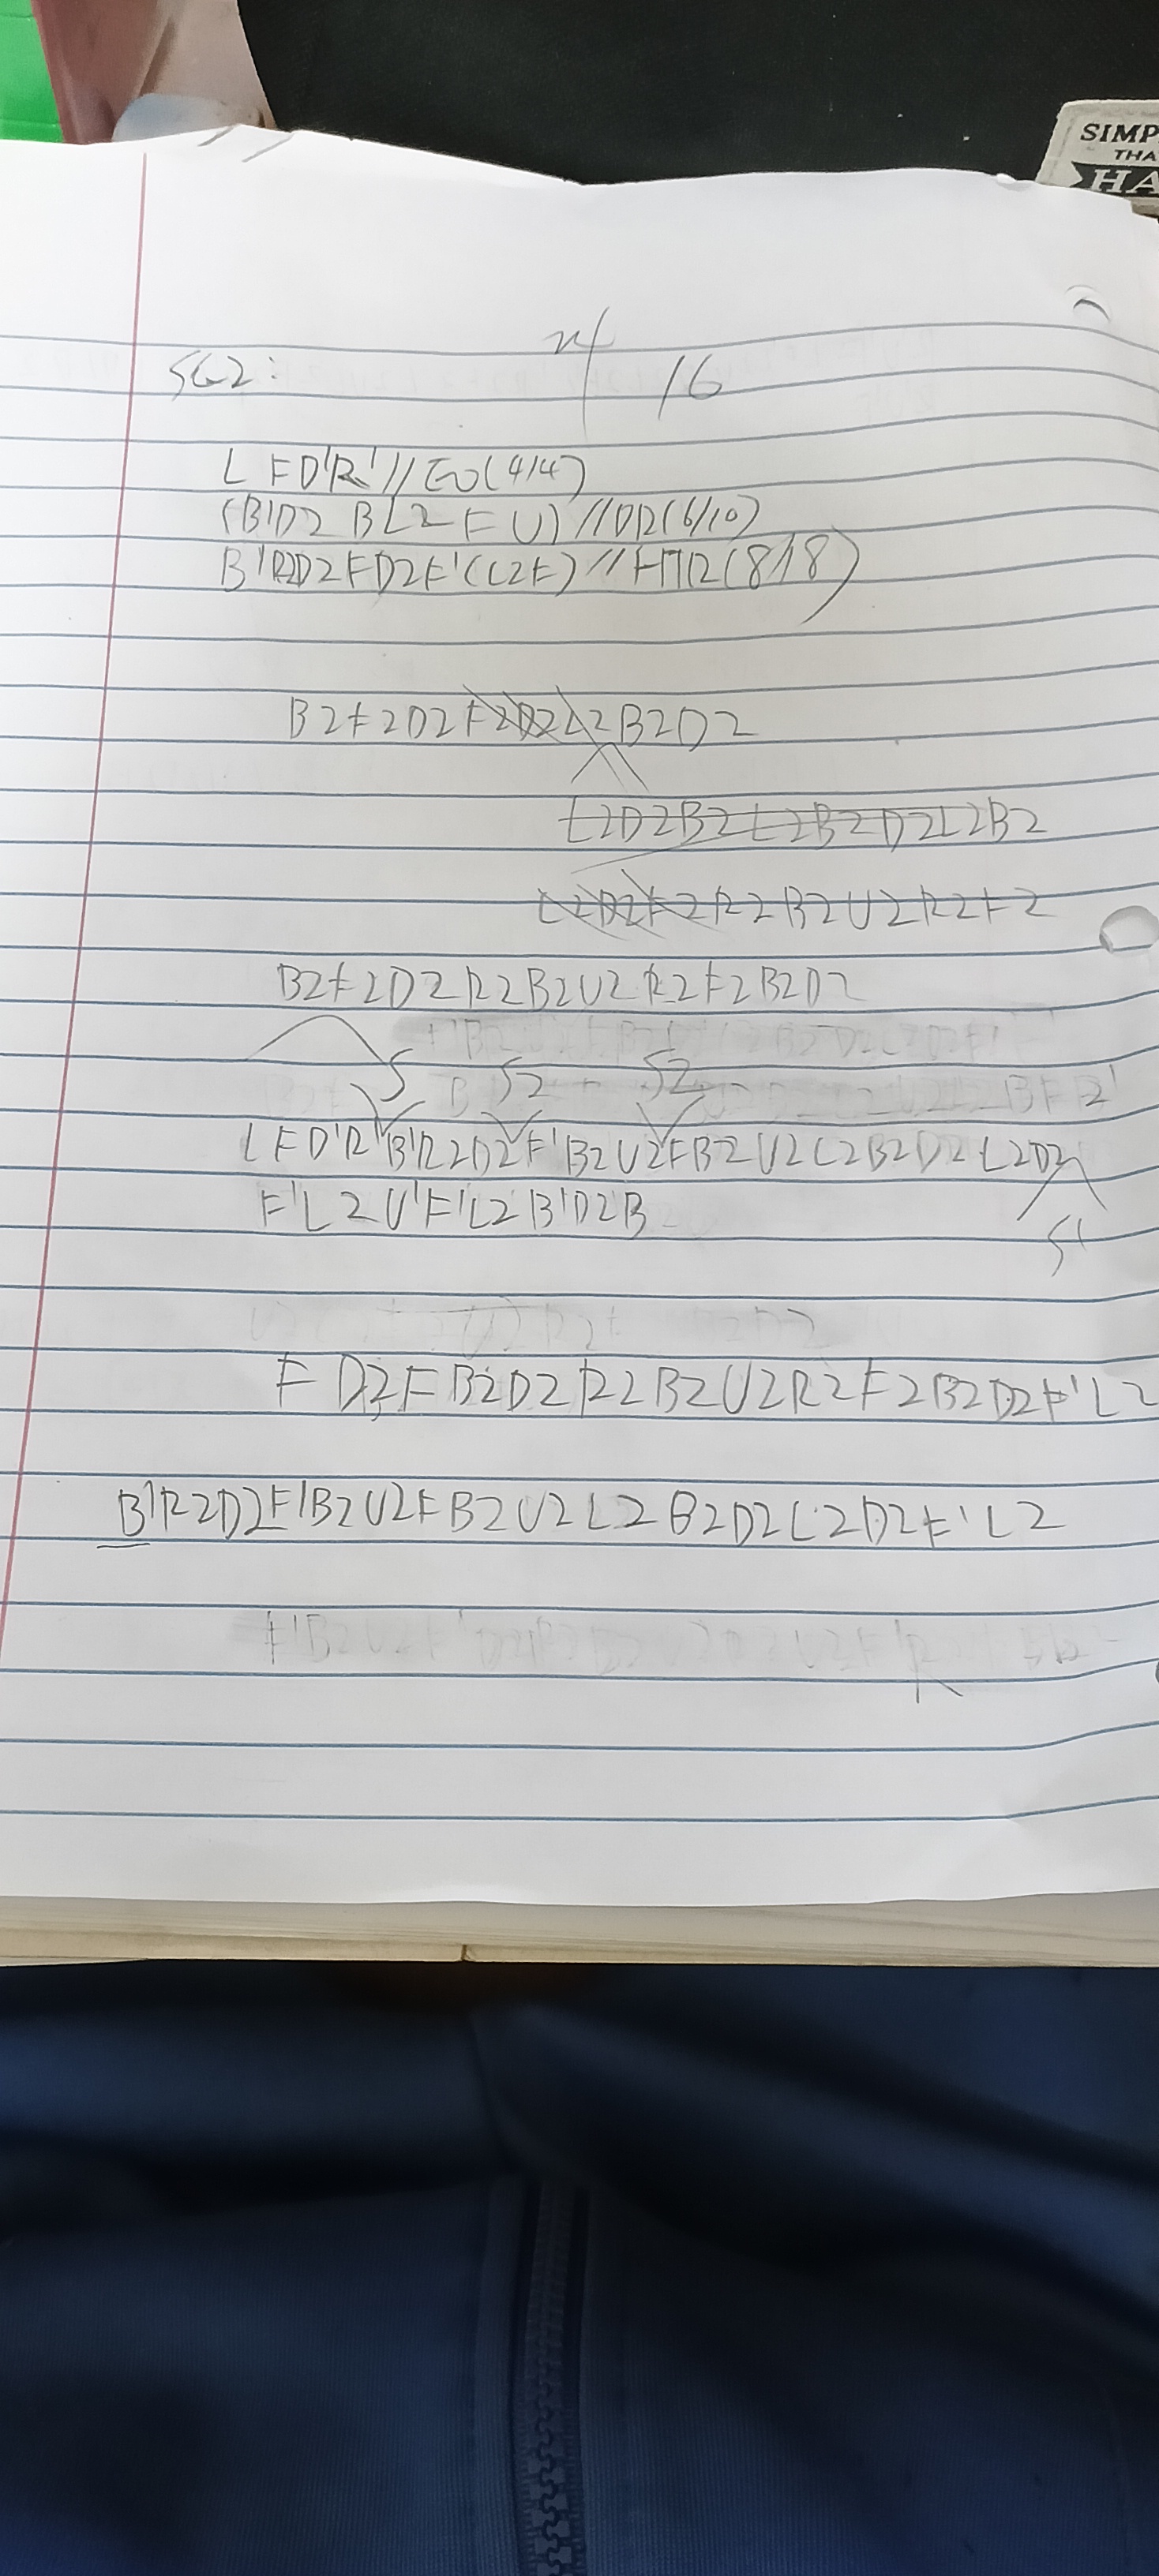 SIMP
THA
HA
SG2:
16
L F D'R' // EO(4/4)
(B'D2 B L2 F U) // DR(6/10)
B'R2D2FD2F'(L2F) // HTR(8/18)
B2F2D2F2D2L2B2D2
L2D2B2L2B2D2L2B2
L2D2F2R2B2U2R2F2
B2F2D2R2B2U2R2F2B2D2
S S2 S2
L F D'R'B'R2D2F'B2U2FB2U2L2B2D2L2D2
F'L2U'F'L2B'D2B
S'
F D2F B2D2R2B2U2R2F2B2D2F'L2
B'R2D2F'B2U2FB2U2L2B2D2L2D2F'L2